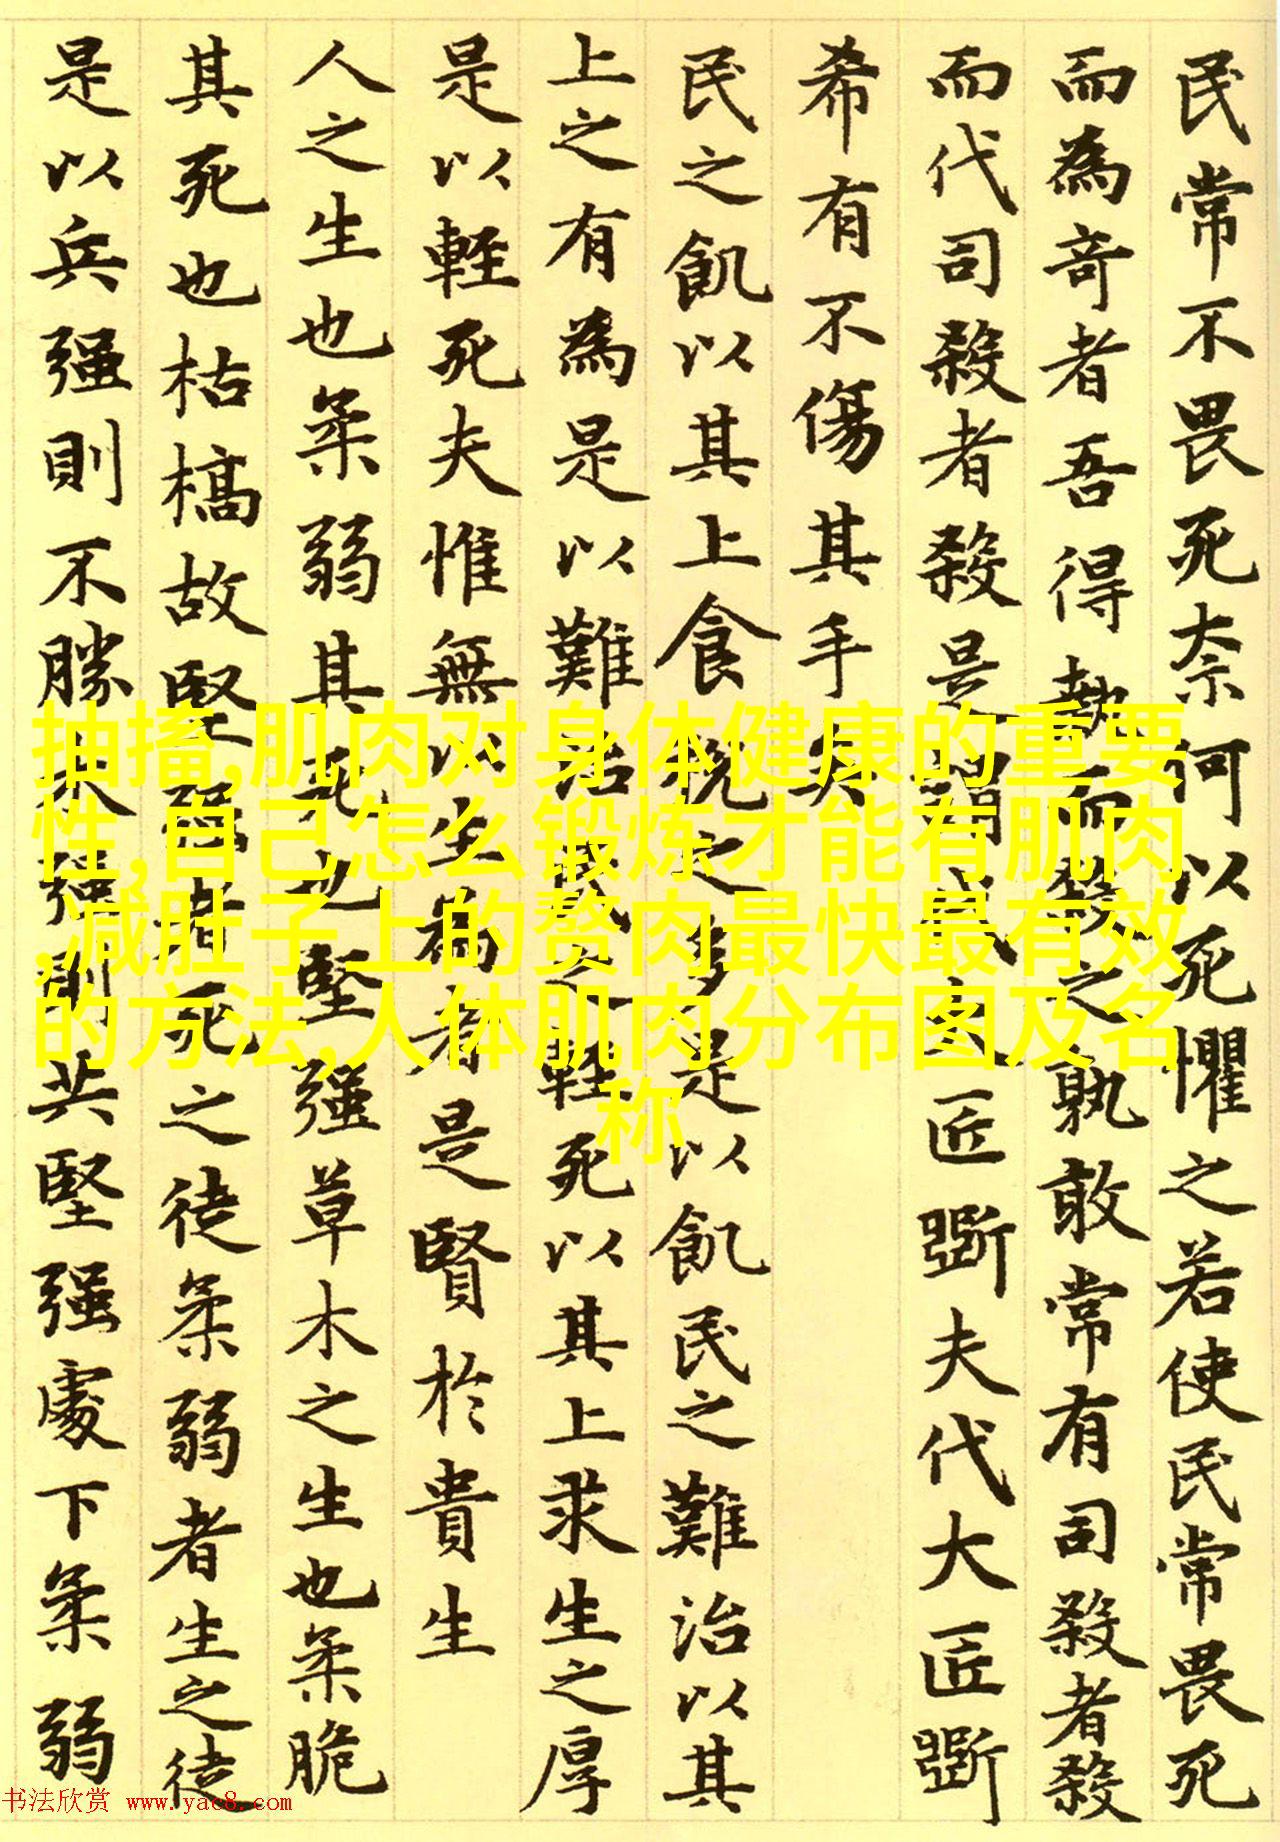 民常不畏死奈何以死懼之若使民常畏死
而為奇者吾得執而殺之孰敢常有司殺者殺
而代司殺者殺是謂代大匠斲夫代大匠斲
希有不傷其手矣
民之飢以其上食稅之多是以飢民之難治以其
上之有為是以難治民之輕死以其上求生之厚
是以輕死夫惟無以生為者是賢於貴生
人之生也柔弱其死也堅強草木之生也柔脆
其死也枯槁故堅強者死之徒柔弱者生之徒
是以兵强則不勝木强則共堅强處下柔弱
抽搐,肌肉对身体健康的重要
性,自己怎么锻炼才能有肌肉
,减肚子上的赘肉最快最有效
的方法,人体肌肉分布图及名
称
书法欣赏 www.yac8.com